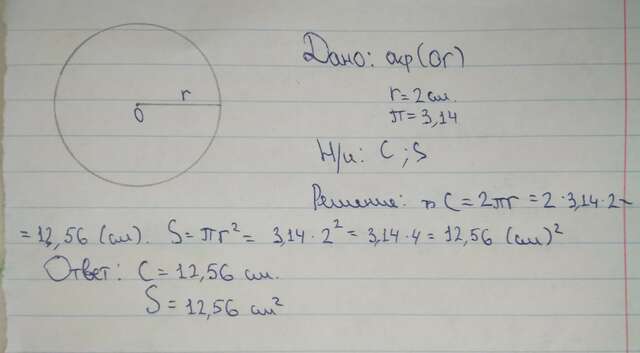 r
O
Дано: окр(Or)
r = 2 см.
π = 3,14
Н/и: C ; S
Решение: C = 2πr = 2 · 3,14 · 2 =
= 12,56 (см). S = πr² = 3,14 · 2² = 3,14 · 4 = 12,56 (см)²
Ответ: C = 12,56 см.
S = 12,56 см²